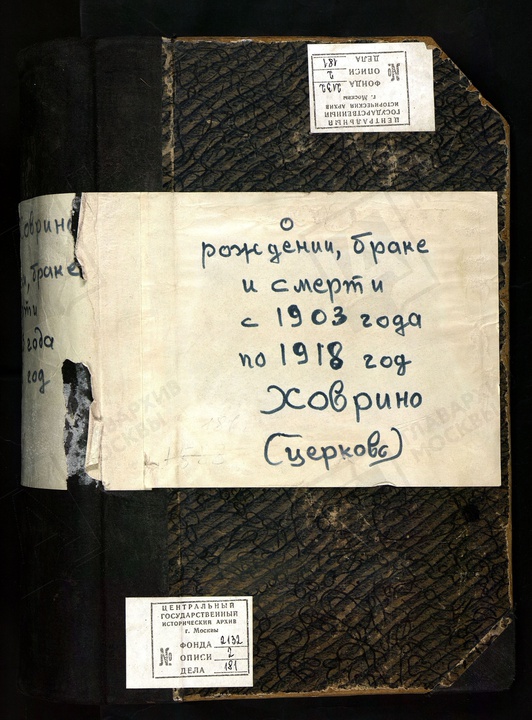 ЦЕНТРАЛЬНЫЙ
ГОСУДАРСТВЕННЫЙ
ИСТОРИЧЕСКИЙ АРХИВ
г. Москвы
№
ФОНДА 2132
ОПИСИ 2
ДЕЛА 181
О
рождении, браке
и смерти
с 1903 года
по 1918 год
Ховрино
(церковь)
браке
года
год
ЦЕНТРАЛЬНЫЙ
ГОСУДАРСТВЕННЫЙ
ИСТОРИЧЕСКИЙ АРХИВ
г. Москвы
№
ФОНДА 2132
ОПИСИ 2
ДЕЛА 181
ГЛАВАРХИВ
МОСКВЫ